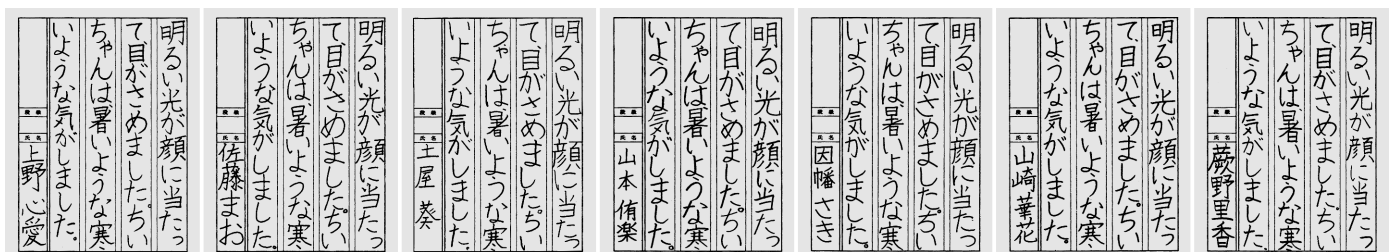 明るい光が顔に当たっ
て、目がさめました。ちい
ちゃんは、暑いような寒
いような気がしました。
段級
氏名
上野 心愛
明るい光が顔に当たっ
て、目がさめました。ちい
ちゃんは、暑いような寒
いような気がしました。
段級
氏名
佐藤まお
明るい光が顔に当たっ
て、目がさめました。ちい
ちゃんは、暑いような寒
いような気がしました。
段級
氏名
土屋 葵
明るい光が顔に当たっ
て、目がさめました。ちい
ちゃんは、暑いような寒
いような気がしました。
段級
氏名
山本 侑楽
明るい光が顔に当たっ
て、目がさめました。ちい
ちゃんは、暑いような寒
いような気がしました。
段級
氏名
因幡さき
明るい光が顔に当たっ
て、目がさめました。ちい
ちゃんは、暑いような寒
いような気がしました。
段級
氏名
山崎 華花
明るい光が顔に当たっ
て、目がさめました。ちい
ちゃんは、暑いような寒
いような気がしました。
段級
氏名
蕨野里香